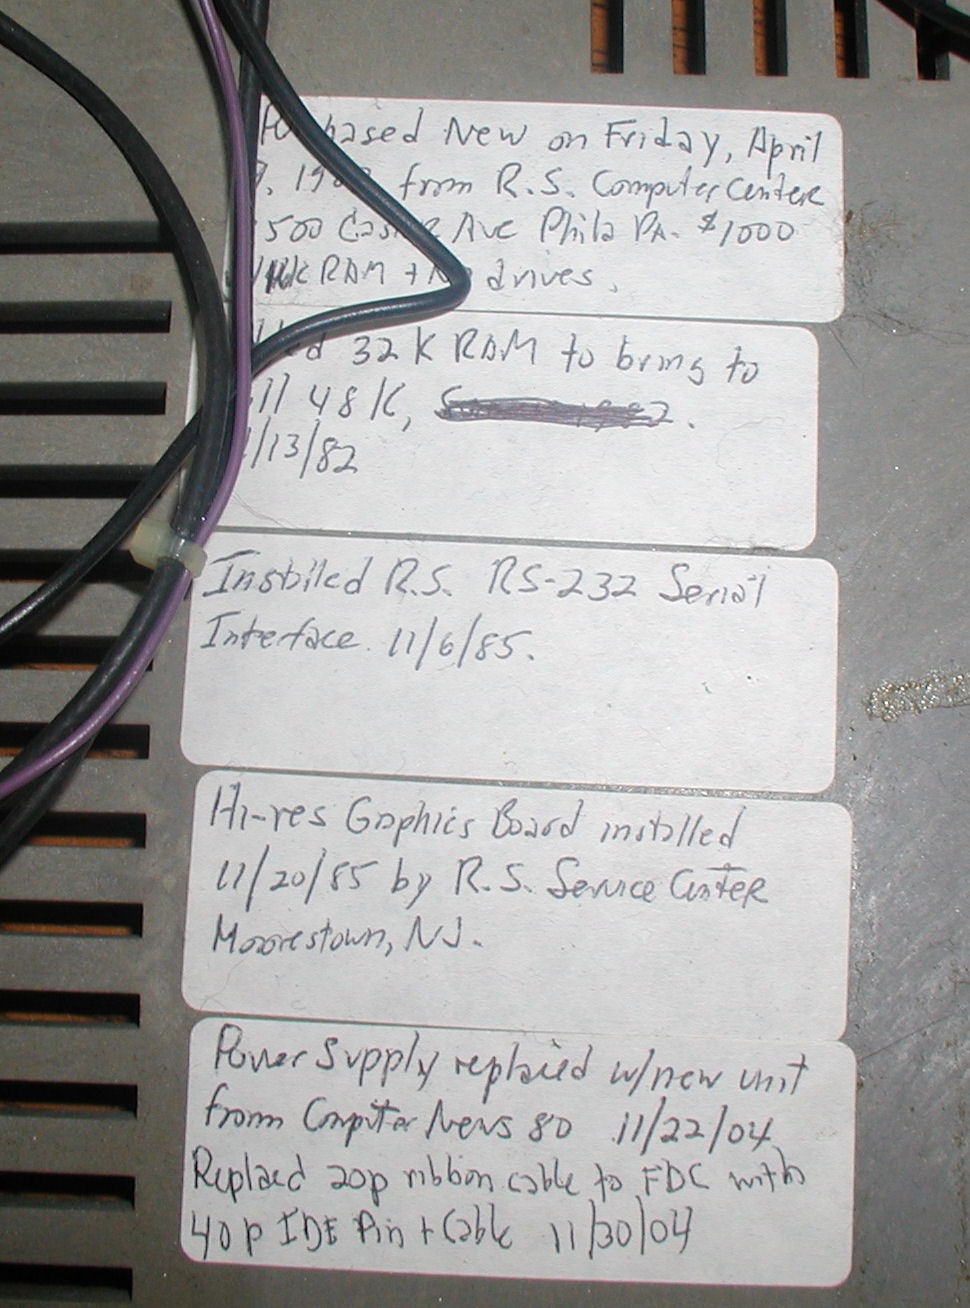 Purchased New on Friday, April
from R.S. Computer Center
500 Ave Phila PA. $1000
RAM + drives.
32K RAM to bring to
48K,
/13/82
Installed R.S. RS-232 Serial
Interface. 11/6/85.
Hi-res Graphics Board installed
11/20/85 by R.S. Service Center
Moorestown, NJ.
Power Supply replaced w/new unit
from Computer News 80 11/22/04
Replaced 20p ribbon cable to FDC with
40p IDE Pin + Cable 11/30/04